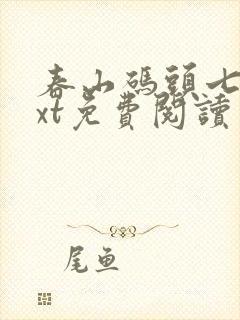 春山碼頭七
xt免費閱讀
尾魚